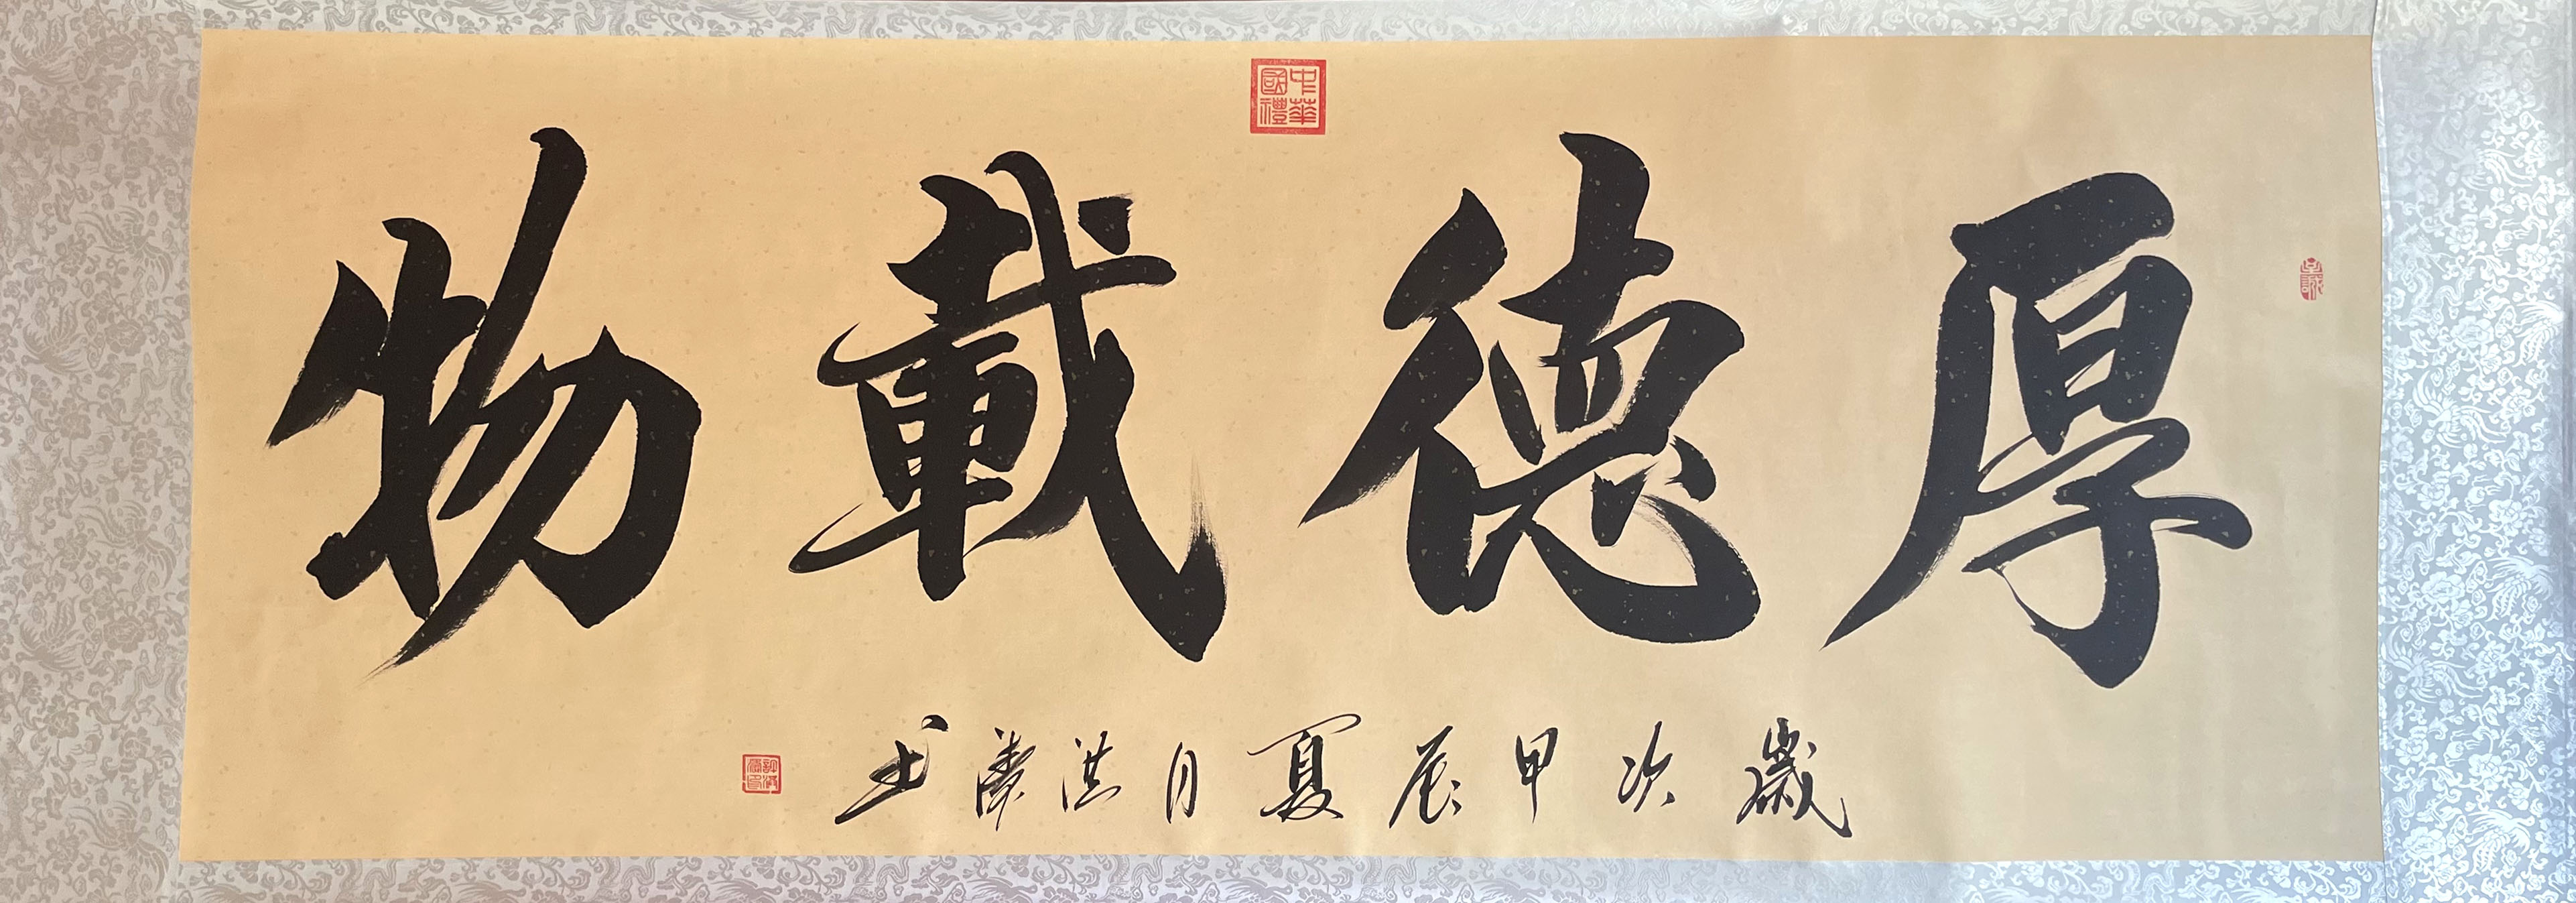 厚德載物
歲次甲辰夏月洪濤書
中華國禮